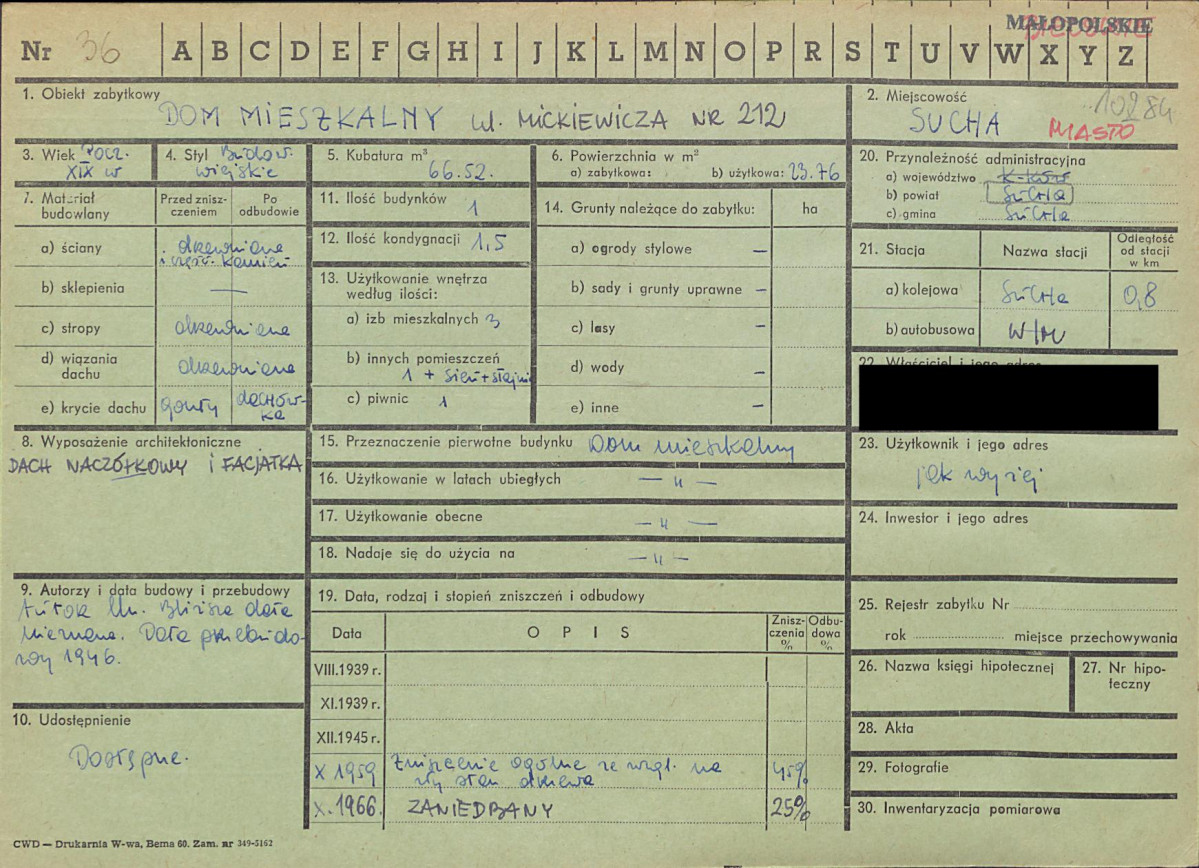 MAŁOPOLSKIE
Nr 36 A B C D E F G H I J K L M N O P R S T U V W X Y Z
1. Obiekt zabytkowy
DOM MIESZKALNY ul. MICKIEWICZA NR 212
2. Miejscowość
SUCHA MIASTO
3. Wiek pocz. XIX w
4. Styl Budow. wiejskie
5. Kubatura m³
66.52.
6. Powierzchnia w m²
a) zabytkowa: b) użytkowa: 23.76
20. Przynależność administracyjna
a) województwo
b) powiat SUCHA
c) gmina SUCHA
7. Materiał budowlany
Przed zniszczeniem
Po odbudowie
a) ściany drewniane
i częśc. kamień
b) sklepienia —
c) stropy drewniane
d) wiązania dachu drewniane
e) krycie dachu gonty dachówka
11. Ilość budynków 1
12. Ilość kondygnacji 1,5
13. Użytkowanie wnętrza
według ilości:
a) izb mieszkalnych 3
b) innych pomieszczeń
1 + sień + stajnia
c) piwnic 1
14. Grunty należące do zabytku: ha
a) ogrody stylowe —
b) sady i grunty uprawne —
c) lasy —
d) wody —
e) inne —
21. Stacja Nazwa stacji Odległość od stacji w km
a) kolejowa Sucha 0,8
b) autobusowa W/M
22. Właściciel i jego adres
23. Użytkownik i jego adres
jak wyżej
24. Inwestor i jego adres
8. Wyposażenie architektoniczne
DACH NACZÓŁKOWY i FACJATKA
15. Przeznaczenie pierwotne budynku Dom mieszkalny
16. Użytkowanie w latach ubiegłych — " —
17. Użytkowanie obecne — " —
18. Nadaje się do użycia na — " —
9. Autorzy i data budowy i przebudowy
Autor nn. Bliższa data
nieznana. Data przebudo-
wy 1946.
10. Udostępnienie
Dostępne.
19. Data, rodzaj i stopień zniszczeń i odbudowy
Data OPIS Zniszczenia % Odbudowa %
VIII.1939 r.
XI.1939 r.
XII.1945 r.
X 1959 Zniszczenie ogólne ze wzgl. na
zły stan drzewa 45%
X.1966. ZANIEDBANY 25%
25. Rejestr zabytku Nr
rok miejsce przechowywania
26. Nazwa księgi hipotecznej
27. Nr hipoteczny
28. Akta
29. Fotografie
30. Inwentaryzacja pomiarowa
CWD — Drukarnia W-wa, Bema 60. Zam. nr 349-5162